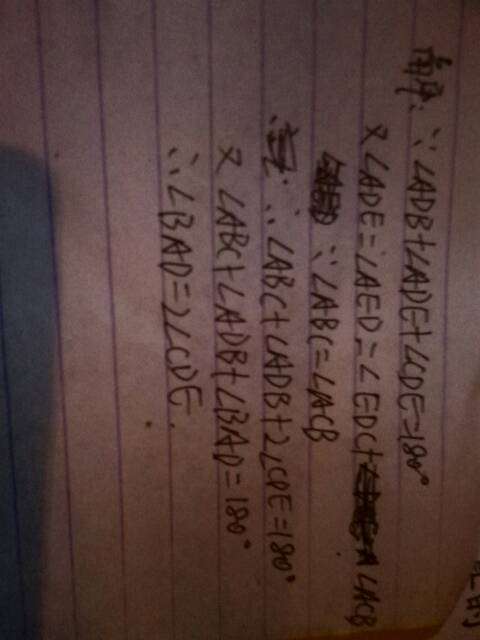 解: ∵∠ADB+∠ADE+∠CDE=180°
又∠ADE=∠AED=∠EDC+∠ACB
∵∠ABC=∠ACB
∴∠ABC+∠ADB+2∠CDE=180°
又∠ABC+∠ADB+∠BAD=180°
∴∠BAD=2∠CDE.